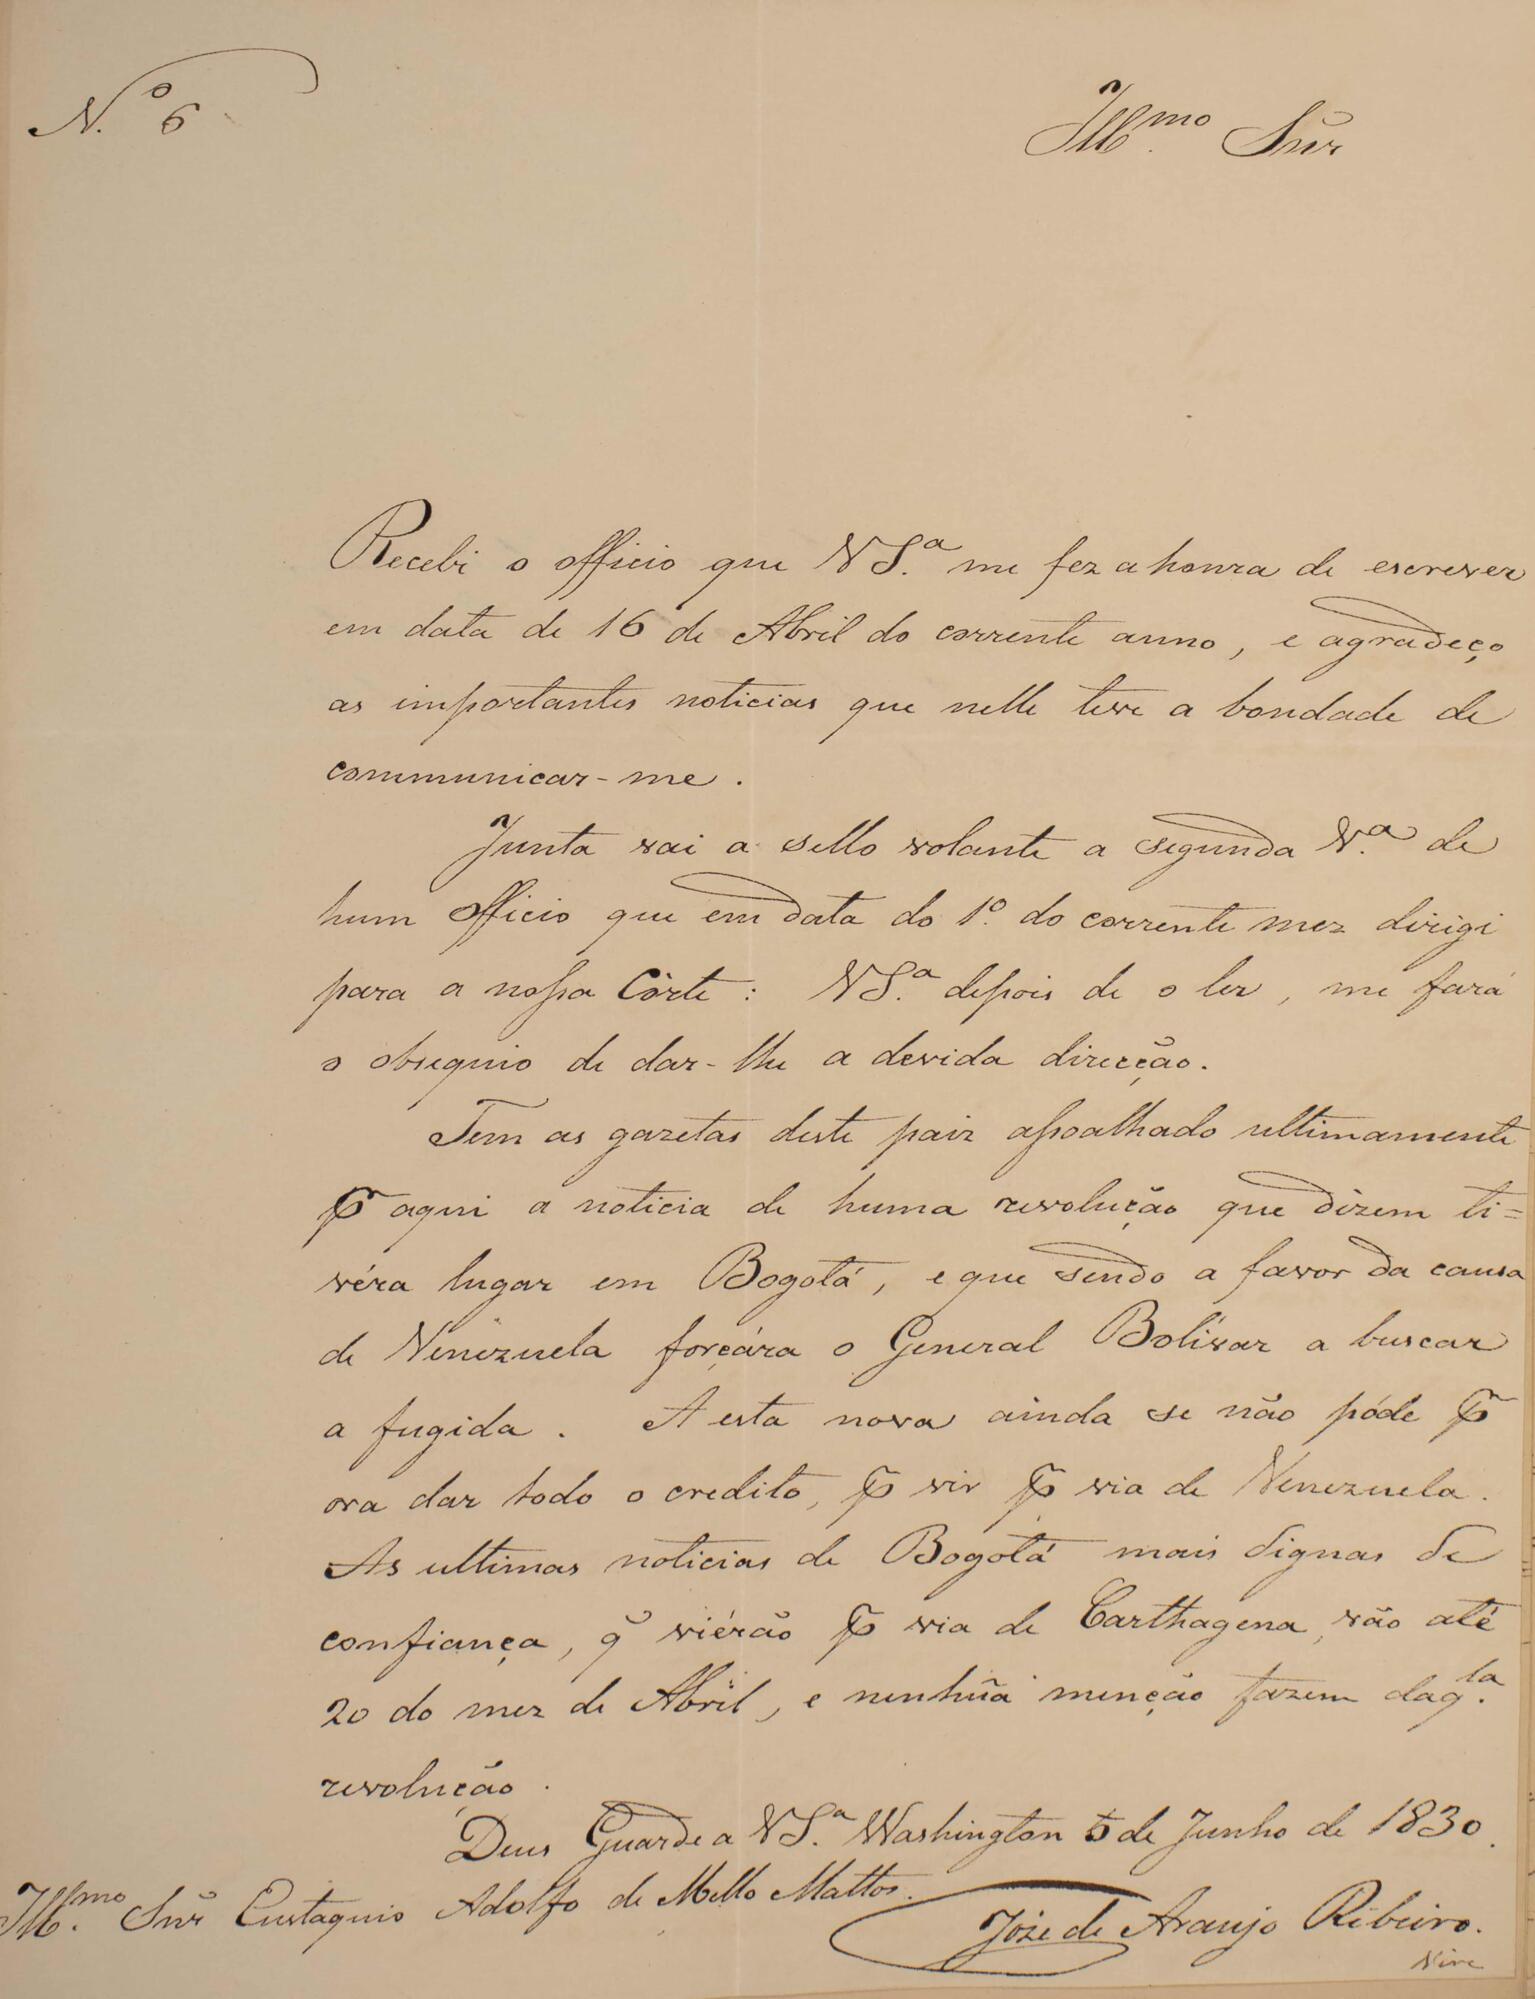 N.º 6
Illmo. Snr
Recebi o officio que VS.ª me fez a honra de escrever
em data de 16 de Abril do corrente anno, e agradeço
as importantes noticias que nelle teve a bondade de
communicar-me.
Junta vai a sello volante a segunda V.ª de
hum officio que em data do 1º. do corrente mez dirigi
para a nossa Côrte: VS.ª depois de o ler, me fará
o obsequio de dar-lhe a devida direcção.
Tem as gazetas deste paiz assoalhado ultimamente
pr aqui a noticia de huma revolução que dizem ti=
véra lugar em Bogotá, e que sendo a favor da causa
de Venezuela forçára o General Bolívar a buscar
a fugida. A esta nova ainda se não póde pr
ora dar todo o credito, pr vir pr via de Venezuela.
As ultimas noticias de Bogotá mais dignas de
confiança, q̃ viérão pr via de Carthagena, vão até
20 do mez de Abril, e nenhũa menção fazem daq.la
revolução.
Deus Guarde a VS.ª Washington 5 de Junho de 1830.
Illmo. Snr Eustaquio Adolfo de Mello Mattos.
Jozé de Araujo Ribeiro.